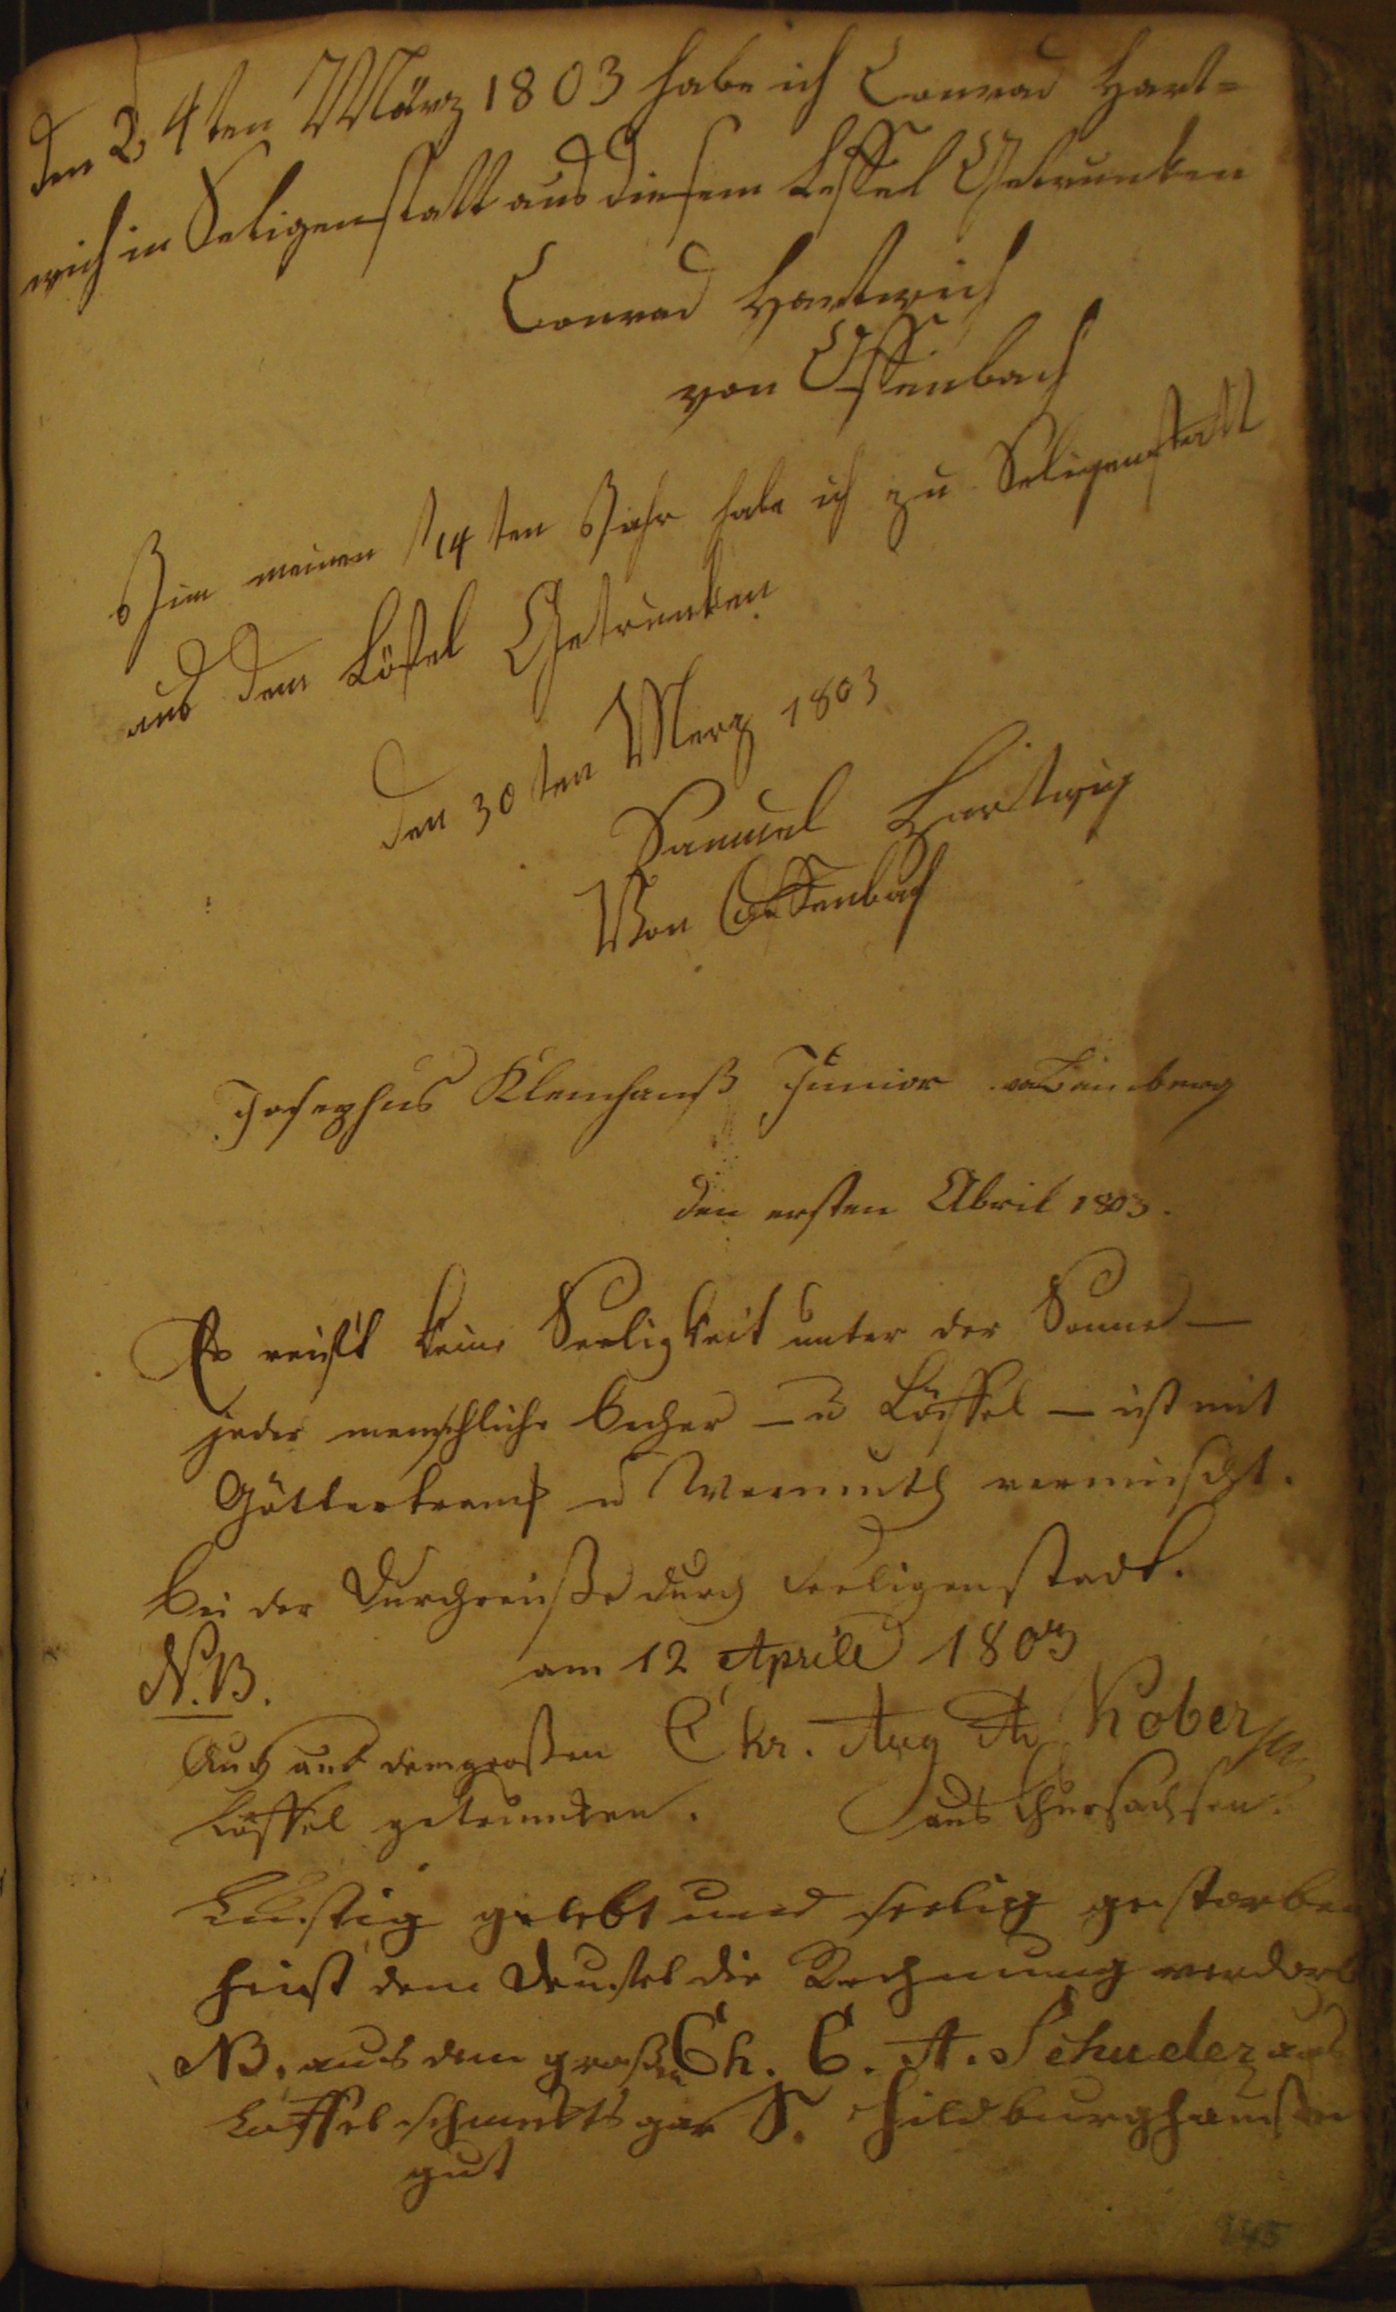 den 24ten März 1803 habe ich Conrad Hart=
wich in Seligenstatt aus diesem Leffel Getruncken
Conrad Hartwich
von Offenbach
Jm meinen 14ten Jahr habe ich zu Seligenstatt
aus dem Löfel Getruncken
den 30ten Merz 1803
Samuel Hartwig
Von Offenbach
Josephus Kleinhanß Junior
den ersten Abril 1803.
Es reift keine Seeligkeit unter der Sonne —
jeder menschliche Becher — u Löffel — ist mit
Göttertrank u Wermuth vermischt.
Bei der Durchreiße durch Seeligenstadt.
am 12 Aprill 1803
N.B.
Auch aus dem großen Chr. Aug Kober
Löffel getrunken. aus Chursachsen.
Lustig gelebt und seelig gestorben
heist dem Teufel die Rechnung verdorb
NB. aus dem großen Ch. C. A. Schuder aus
Löffel schmekts gar S. Hildburghaußen
gut
145